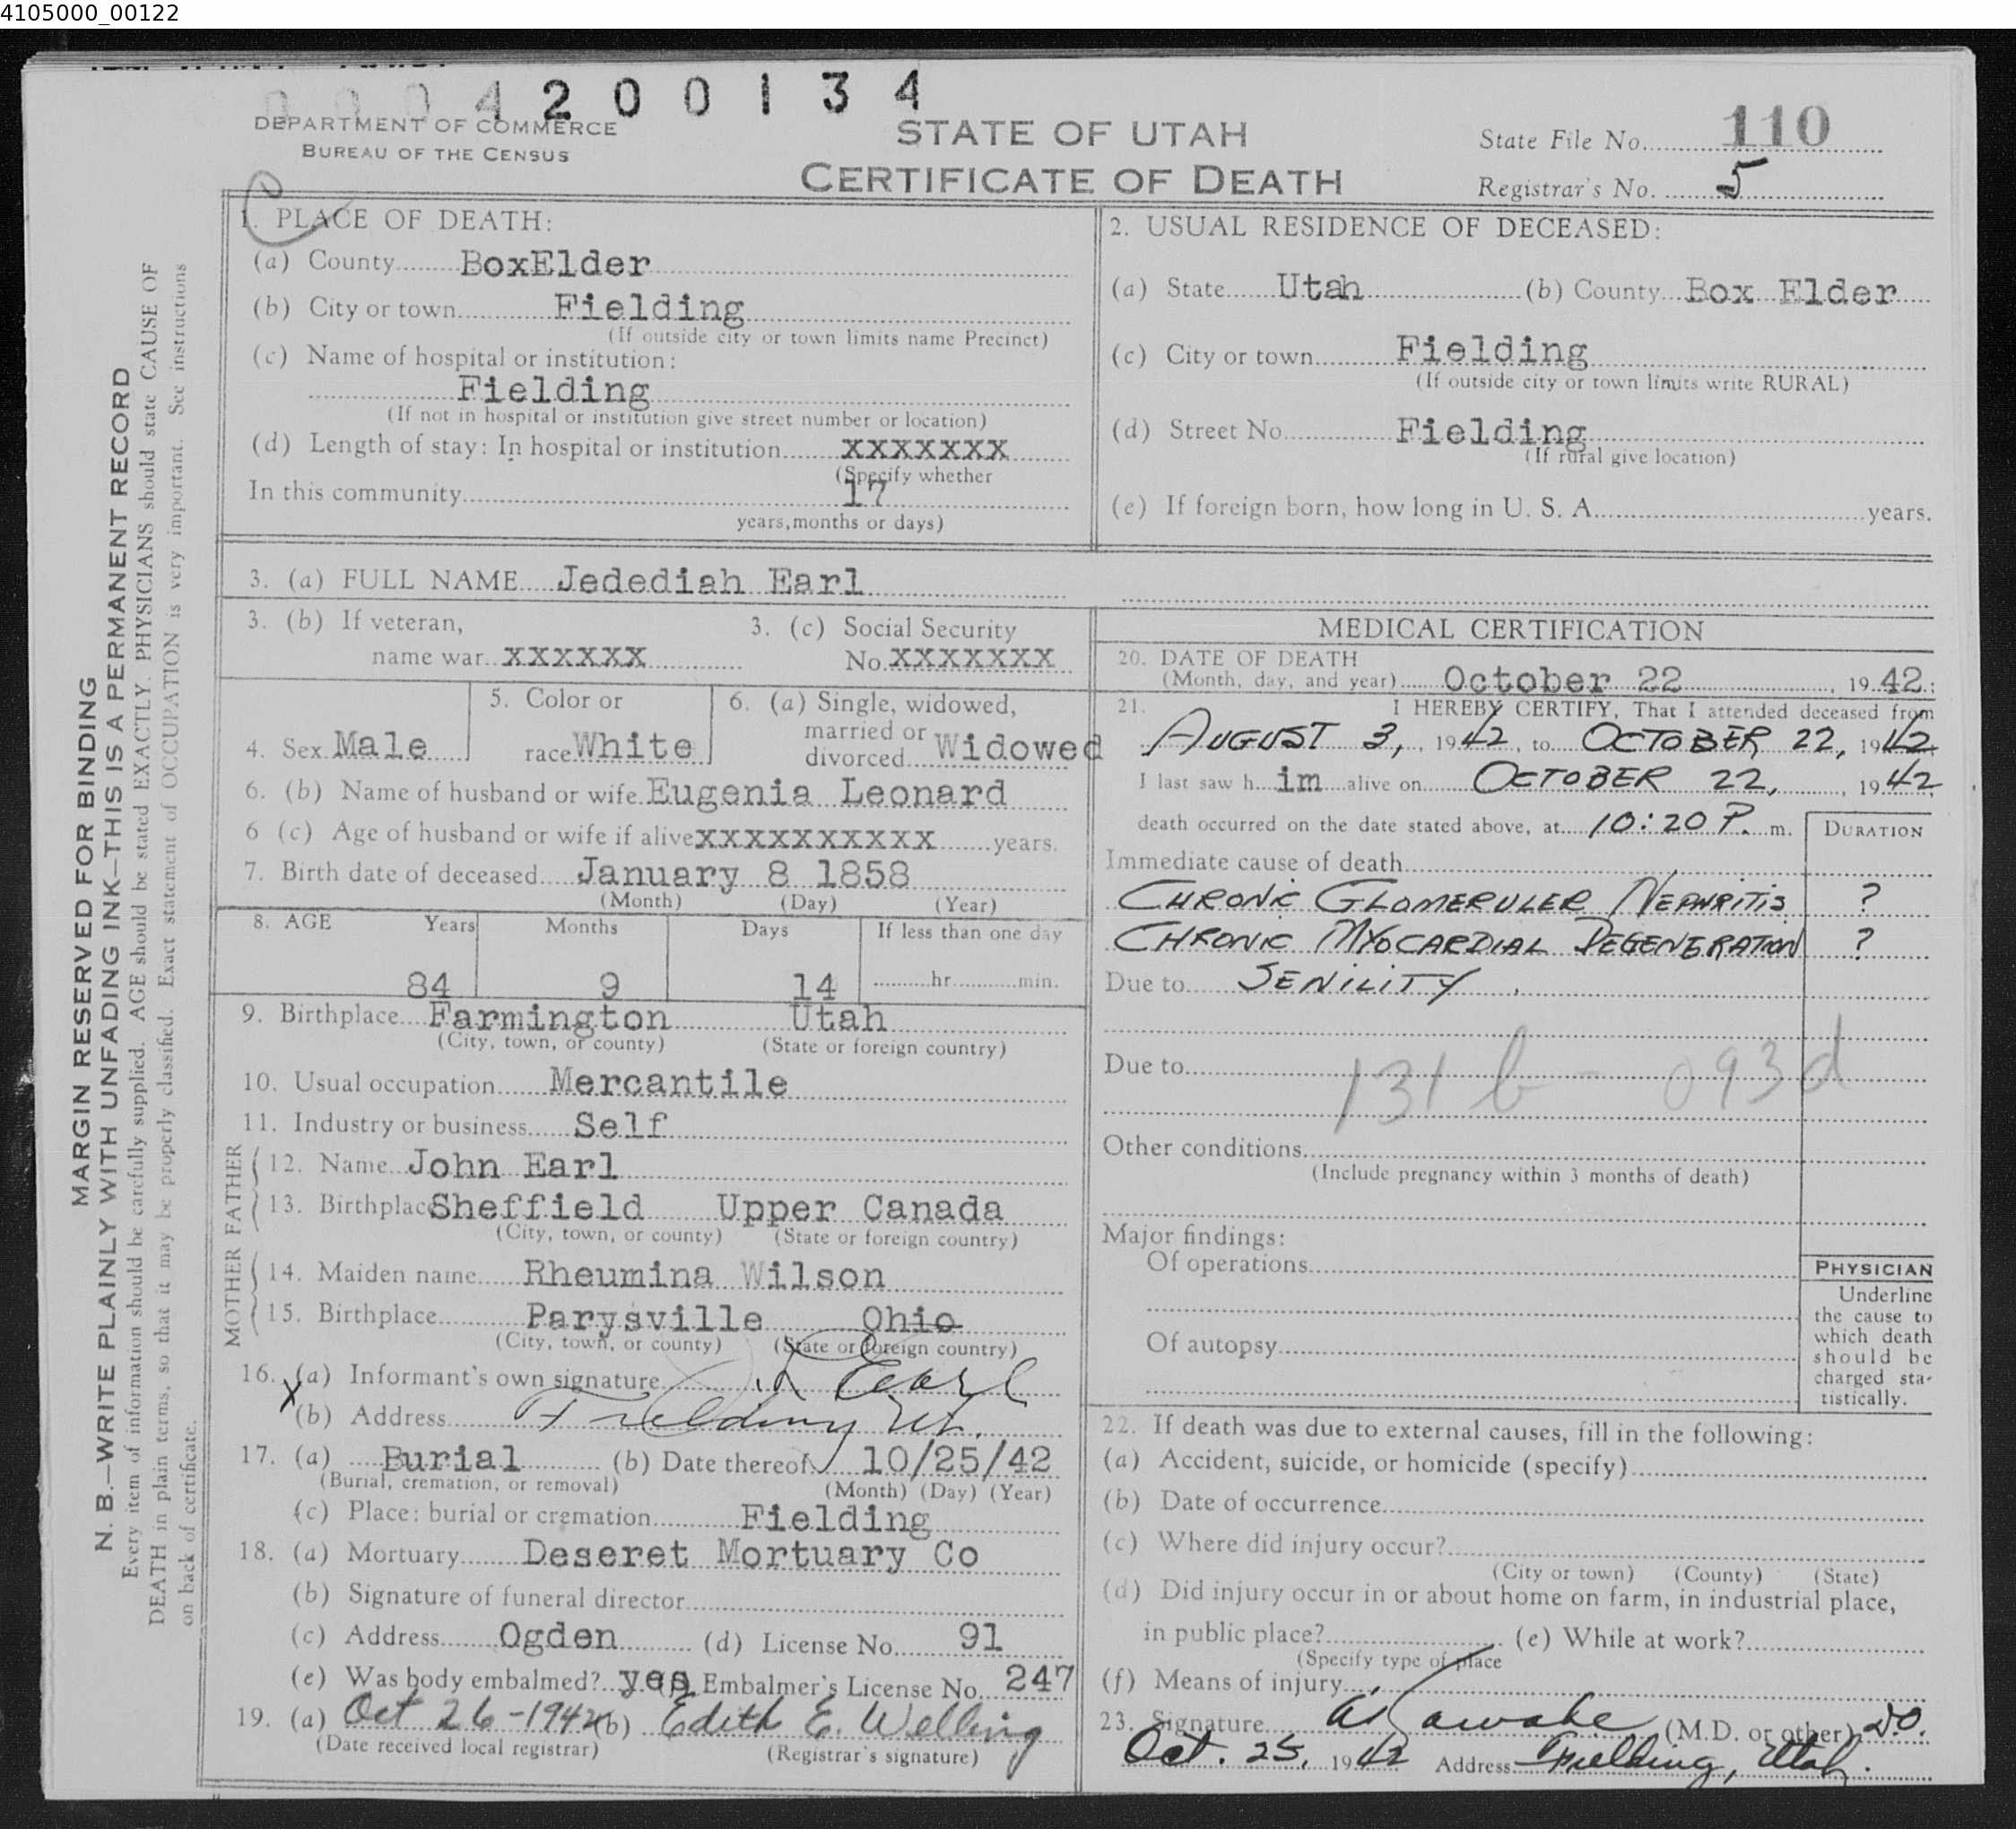 4105000_00122
0004200134
DEPARTMENT OF COMMERCE
BUREAU OF THE CENSUS
STATE OF UTAH
CERTIFICATE OF DEATH
State File No. 110
Registrar's No. 5
MARGIN RESERVED FOR BINDING
N. B.—WRITE PLAINLY WITH UNFADING INK—THIS IS A PERMANENT RECORD
Every item of information should be carefully supplied. AGE should be stated EXACTLY. PHYSICIANS should state CAUSE OF
DEATH in plain terms, so that it may be properly classified. Exact statement of OCCUPATION is very important. See instructions
on back of certificate.
1. PLACE OF DEATH:
(a) County BoxElder
(b) City or town Fielding
(If outside city or town limits name Precinct)
(c) Name of hospital or institution:
Fielding
(If not in hospital or institution give street number or location)
(d) Length of stay: In hospital or institution XXXXXXX
(Specify whether
In this community 17
years, months or days)
2. USUAL RESIDENCE OF DECEASED:
(a) State Utah (b) County Box Elder
(c) City or town Fielding
(If outside city or town limits write RURAL)
(d) Street No. Fielding
(If rural give location)
(e) If foreign born, how long in U. S. A. years.
3. (a) FULL NAME Jedediah Earl
3. (b) If veteran,
name war XXXXXX
3. (c) Social Security
No. XXXXXXX
4. Sex Male
5. Color or
race White
6. (a) Single, widowed,
married or
divorced Widowed
6. (b) Name of husband or wife Eugenia Leonard
6 (c) Age of husband or wife if alive XXXXXXXXXX years.
7. Birth date of deceased January 8 1858
(Month) (Day) (Year)
8. AGE Years Months Days If less than one day
84 9 14 hr. min.
9. Birthplace Farmington Utah
(City, town, or county) (State or foreign country)
10. Usual occupation Mercantile
11. Industry or business Self
FATHER
12. Name John Earl
13. Birthplace Sheffield Upper Canada
(City, town, or county) (State or foreign country)
MOTHER
14. Maiden name Rheumina Wilson
15. Birthplace Parysville Ohio
(City, town, or county) (State or foreign country)
16. X (a) Informant's own signature Earl
(b) Address Fielding Ut.
17. (a) Burial (b) Date thereof 10/25/42
(Burial, cremation, or removal) (Month) (Day) (Year)
(c) Place: burial or cremation Fielding
18. (a) Mortuary Deseret Mortuary Co
(b) Signature of funeral director
(c) Address Ogden (d) License No. 91
(e) Was body embalmed? yes Embalmer's License No. 247
19. (a) Oct 26-1942 (b) Edith E. Welling
(Date received local registrar) (Registrar's signature)
MEDICAL CERTIFICATION
20. DATE OF DEATH
(Month, day, and year) October 22, 19 42;
21. I HEREBY CERTIFY, That I attended deceased from
AUGUST 3, 1942, to OCTOBER 22, 1942
I last saw h im alive on OCTOBER 22, 1942
death occurred on the date stated above, at 10:20 P. m.
DURATION
Immediate cause of death
CHRONIC GLOMERULER NEPHRITIS ?
CHRONIC MYOCARDIAL DEGENERATION ?
Due to SENILITY
Due to
131 b - 093d
Other conditions
(Include pregnancy within 3 months of death)
Major findings:
Of operations
Of autopsy
PHYSICIAN
Underline
the cause to
which death
should be
charged sta-
tistically.
22. If death was due to external causes, fill in the following:
(a) Accident, suicide, or homicide (specify)
(b) Date of occurrence
(c) Where did injury occur?
(City or town) (County) (State)
(d) Did injury occur in or about home on farm, in industrial place,
in public place? (e) While at work?
(Specify type of place
(f) Means of injury
23. Signature (M.D. or other) D.O.
Oct. 25, 1942 Address Fielding, Utah.